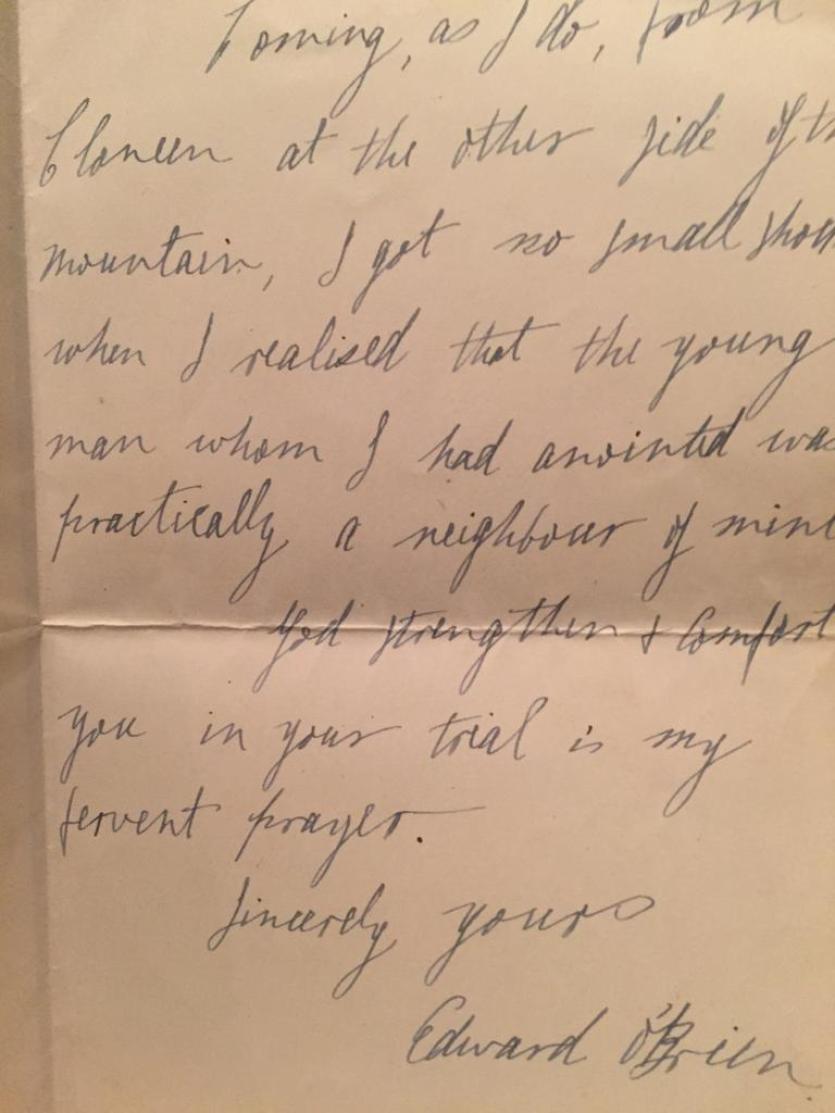 Coming, as I do, from
Cloneen at the other side of th
mountain, I got no small shock
when I realised that the young
man whom I had anointed was
practically a neighbour of mine
God strengthen & Comfort
you in your trial is my
fervent prayer.
Sincerely yours
Edward O'Brien